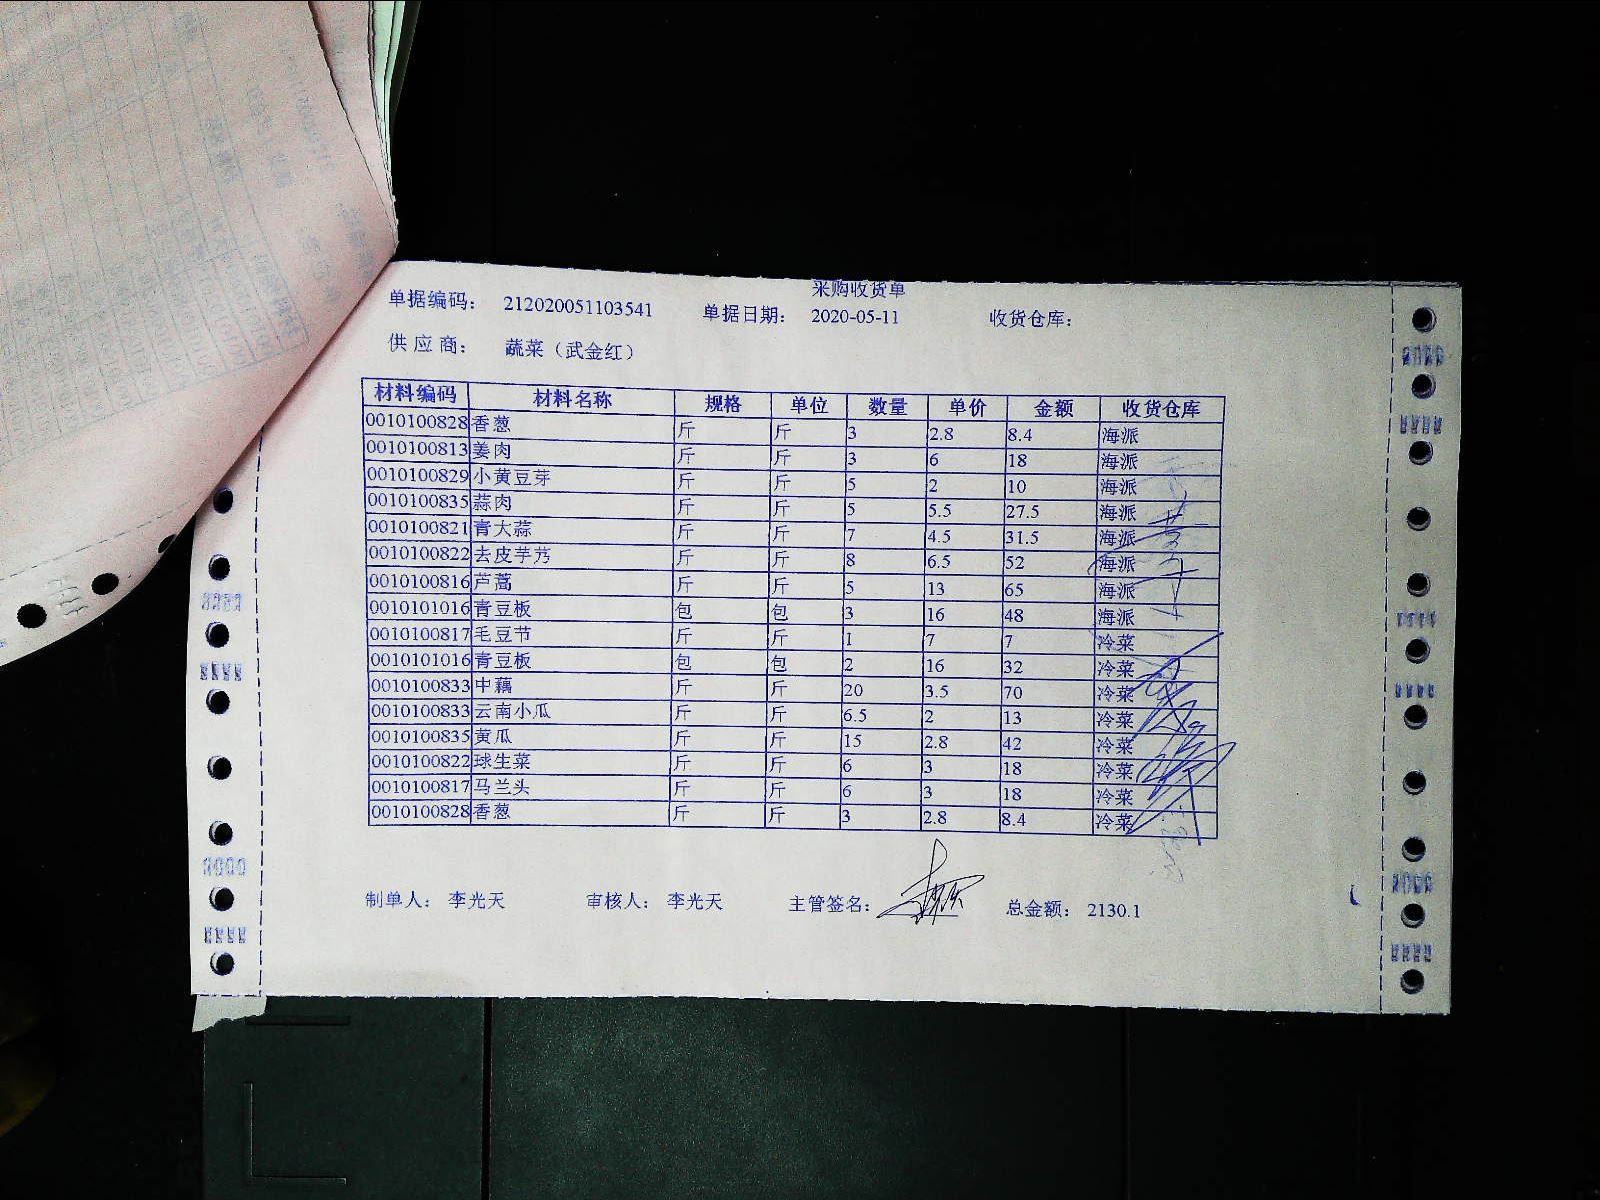 采购收货单
单据编码： 212020051103541 单据日期： 2020-05-11 收货仓库：
供应商： 蔬菜（武金红）
材料编码 材料名称 规格 单位 数量 单价 金额 收货仓库
0010100828 香葱 斤 斤 3 2.8 8.4 海派
0010100813 姜肉 斤 斤 3 6 18 海派
0010100829 小黄豆芽 斤 斤 5 2 10 海派
0010100835 蒜肉 斤 斤 5 5.5 27.5 海派
0010100821 青大蒜 斤 斤 7 4.5 31.5 海派
0010100822 去皮芋艿 斤 斤 8 6.5 52 海派
0010100816 芦蒿 斤 斤 5 13 65 海派
0010101016 青豆板 包 包 3 16 48 海派
0010100817 毛豆节 斤 斤 1 7 7 冷菜
0010101016 青豆板 包 包 2 16 32 冷菜
0010100833 中藕 斤 斤 20 3.5 70 冷菜
0010100833 云南小瓜 斤 斤 6.5 2 13 冷菜
0010100835 黄瓜 斤 斤 15 2.8 42 冷菜
0010100822 球生菜 斤 斤 6 3 18 冷菜
0010100817 马兰头 斤 斤 6 3 18 冷菜
0010100828 香葱 斤 斤 3 2.8 8.4 冷菜
制单人： 李光天 审核人： 李光天 主管签名： 总金额： 2130.1